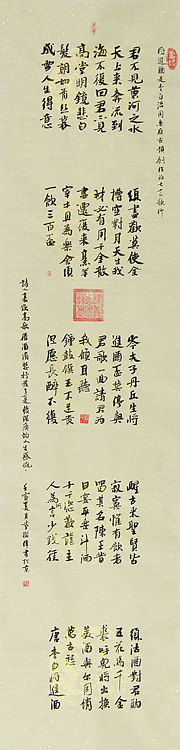 將進酒是李白沿用樂府古題創作的七言歌行
君不見黃河之水
天上來奔流到
海不復回君不見
高堂明鏡悲白
髮朝如青絲暮
成雪人生得意
須盡歡莫使金
樽空對月天生我
材必有用千金散
盡還復來烹羊
宰牛且為樂會須
一飲三百盃
岑夫子丹丘生將
進酒盃莫停與
君歌一曲請君為
我傾耳聽
鐘鼓饌玉不足貴
但願長醉不復
醒古來聖賢皆
寂寞惟有飲者
留其名陳王昔
時宴平樂斗酒
十千恣歡謔主
人為何言少錢徑
須沽酒對君酌
五花馬千金
裘呼兒將出換
美酒與爾同銷
萬古愁
唐李白將進酒